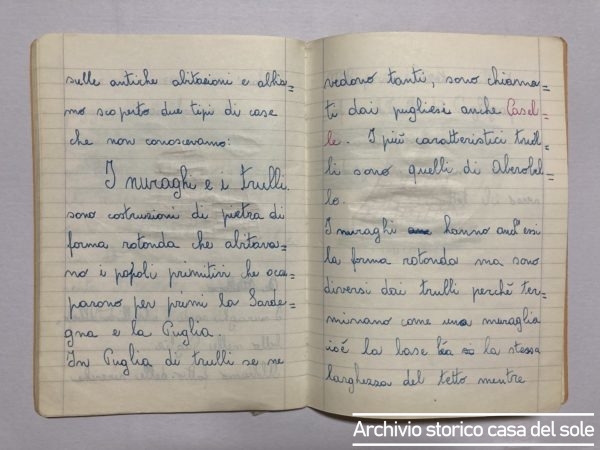 sulle antiche abitazioni e abbia=
mo scoperto due tipi di case
che non conoscevamo:
I nuraghi e i trulli
sono costruzioni di pietra di
forma rotonda che abitava=
no i popoli primitivi che occu=
parono per primi la Sarde=
gna e la Puglia.
In Puglia di trulli se ne
vedono tanti, sono chiama=
ti dai pugliesi anche Casel=
le. I più caratteristici trul=
li sono quelli di Aberobel=
lo.
I nuraghi hanno anch'essi
la forma rotonda ma sono
diversi dai trulli perché ter=
minano come una muraglia
cioé la base ha la stessa
larghezza del tetto mentre
Archivio storico casa del sole